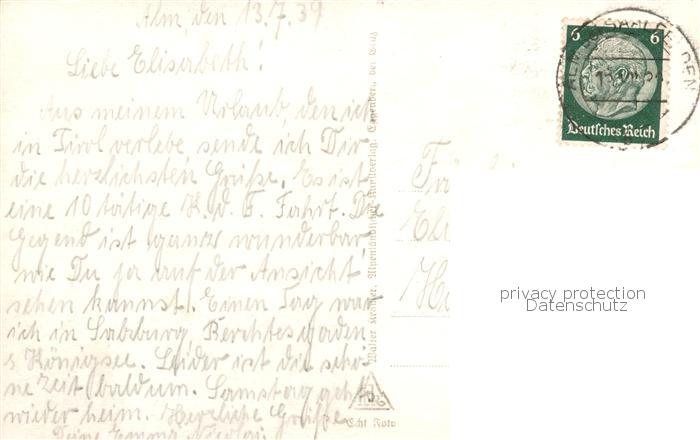 Alm, den 13.7.39
Liebe Elisabeth!
Aus meinem Urlaub, den ich
in Tirol verlebe sende ich Dir
die herzlichsten Grüße. Es ist
eine 10 tätige K.d.F. Fahrt. Die
Gegend ist ganz wunderbar,
wie Du ja auf der Ansicht
sehen kannst. Einen Tag war
ich in Salzburg, Berchtesgaden
& Königsee. Leider ist die schö-
ne Zeit bald um. Samstag geht
wieder heim. Herzliche Grüße
Deine Emma
Walter Kremser, Alpenländischer Kunstverlag, Eggenberg, bei Graz
Echt Foto
6 6
Deutsches Reich
SAALFELDEN
privacy protection
Datenschutz